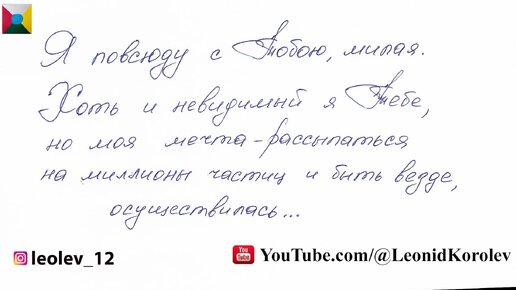 Я повсюду с Тобою, милая.
Хоть и невидимый я Тебе,
но моя мечта - рассыпаться
на миллионы частиц и быть везде,
осуществилась...
leolev_12
YouTube.com/@LeonidKorolev